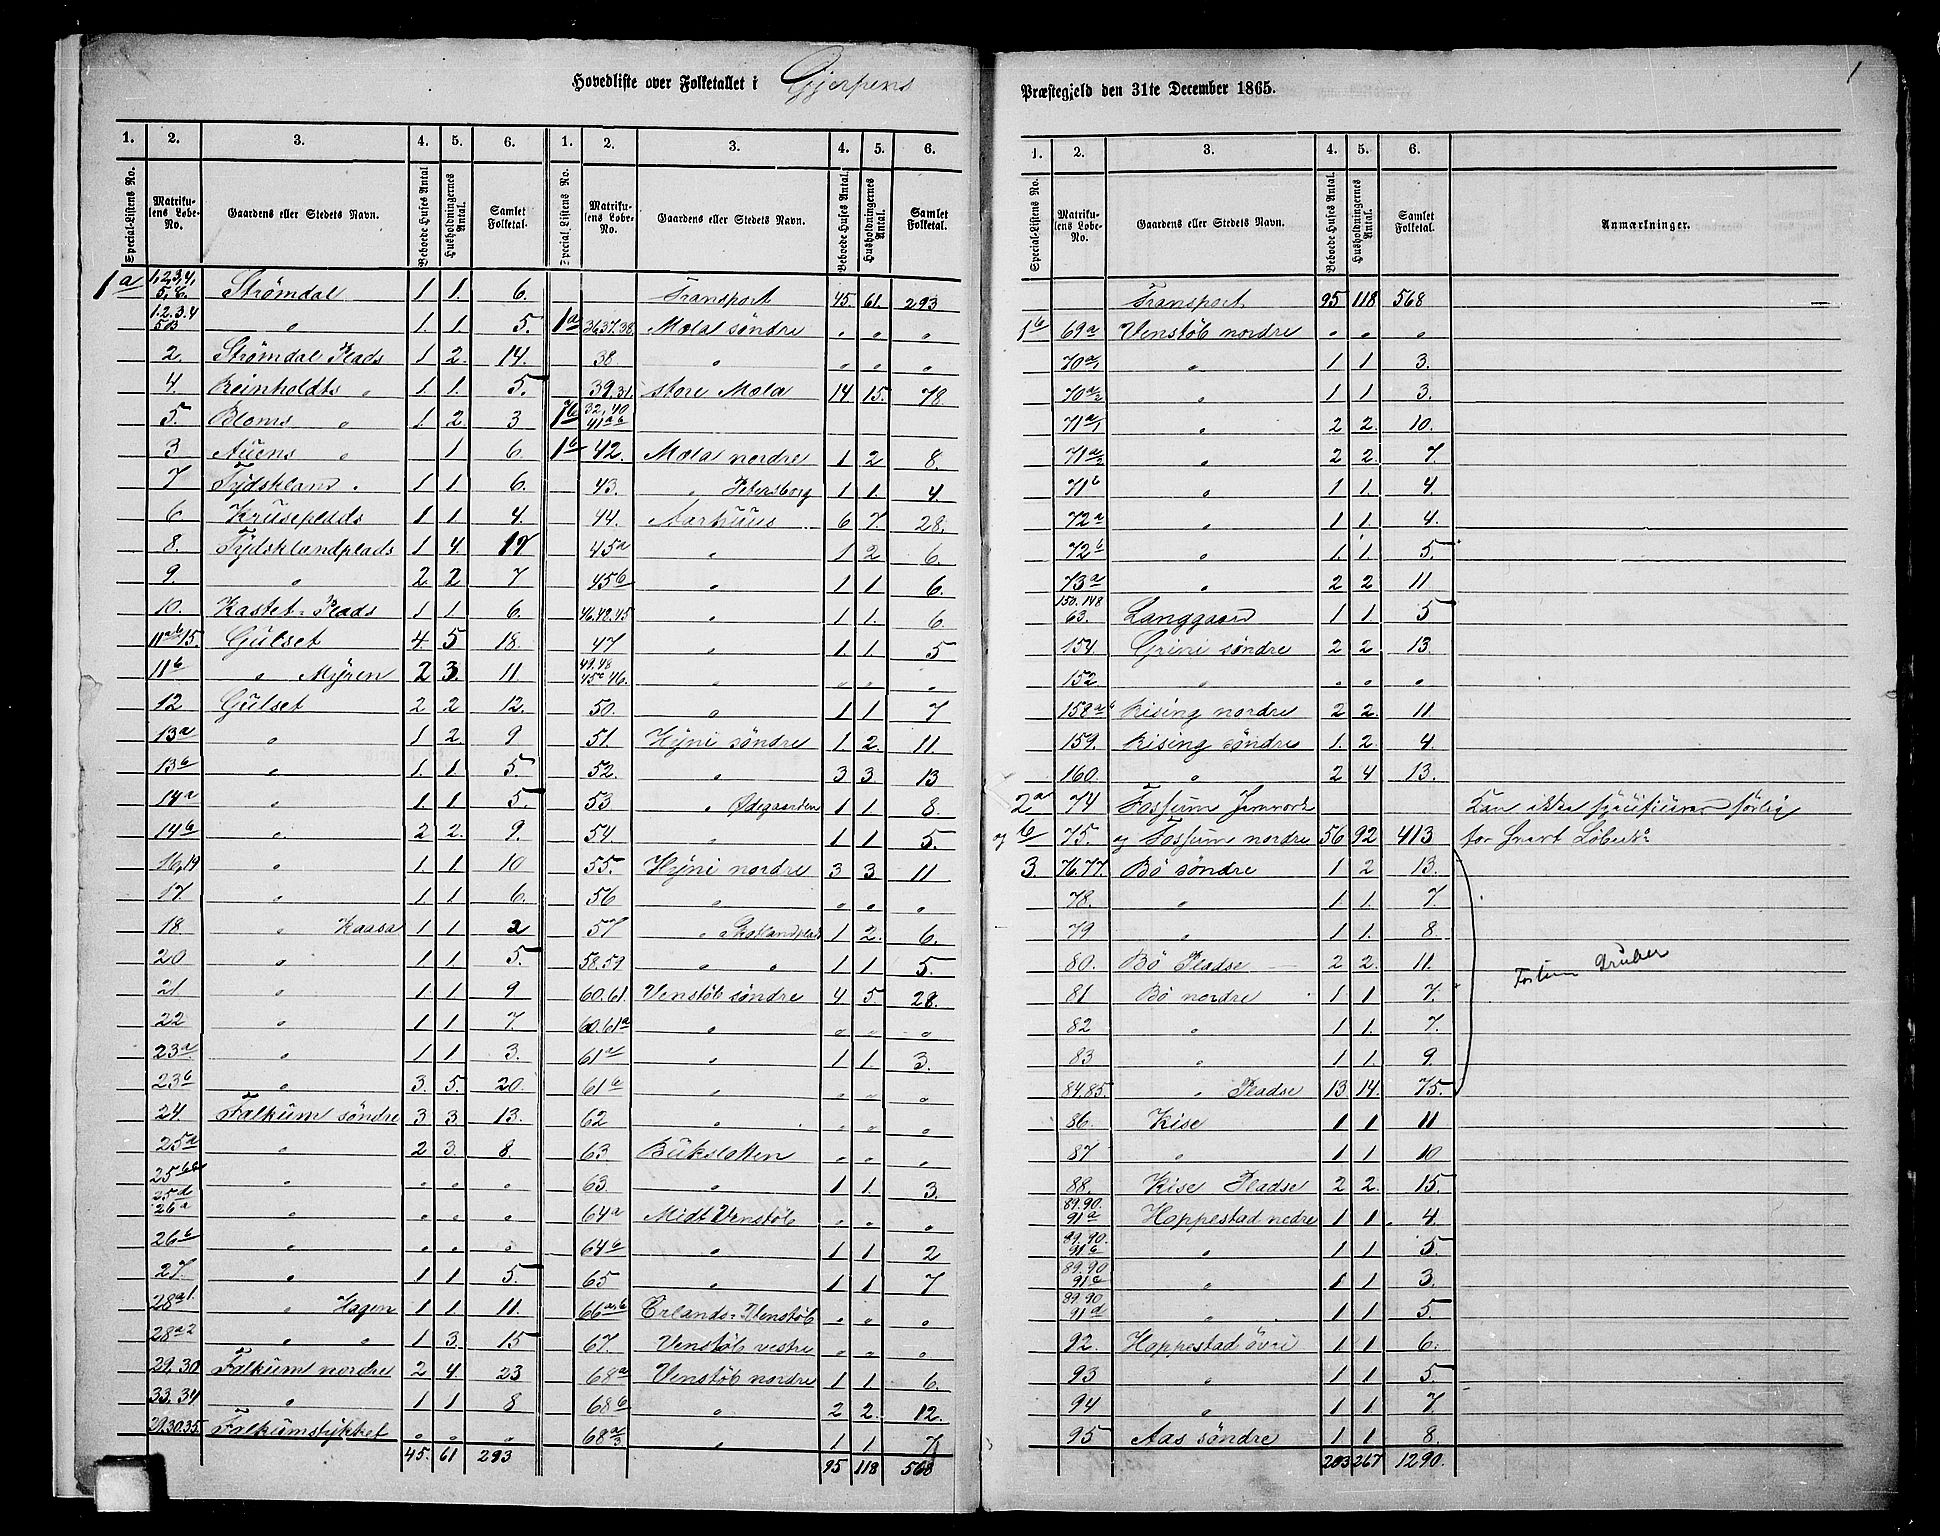 Hovedliste over Folketallet i Gjerpens
1. 2. 3. 4. 5. 6. 1. 2. 3. 4. 5. 6.
Special-Listens No. Matrikulens Løbe-No. Gaardens eller Stedets Navn. Beboede Huses Antal Husholdningernes Antal. Samlet Folketal. Special-Listens No. Matrikulens Løbe-No. Gaardens eller Stedets Navn. Beboede Huses Antal. Husholdningernes Antal. Samlet Folketal.
1a 1,2,3,4, 5,6. Strømdal 1 1. 6.
1.2.3.4 5B " 1. 1. 5.
2. Strømdal Plads 1 2. 14.
4. Reinholdts " 1 1. 5.
5. Bloms " 1. 2. 3
3 Auens " 1 6.
7 Tydskland " 1 1. 6.
6 Kruseplads 1 1. 4.
8. Tydsklandplads 1 4. 17
9 " 2. 2 7
10. Kastet-Plads 1 1 6.
11ab 15. Gulset 4. 5 18.
11b " Myren 2 3. 11.
12 Gulset 2 2 12.
13a " 1 2. 9
13b " 1. 1. 5.
14a " 1. 1. 5.
14b " 2 2. 9.
16,19 " 1. 1. 10
17 " 1 1 6.
18 " Kaasa 1 1 2
20 " 1 1. 5.
21 " 1 1 9
22 " 1 1 7
23a " 1 1 3.
23b " 3. 5. 20.
24. Falkum söndre 3 3. 13.
25a " 2 3. 8.
25bc " " " "
25d 26a " " " "
26b " " " "
27. " 1 1 5.
28a1. " Hagen 1 1 11.
28a2 " " 1 3. 15
29,30 Falkum nordre 2 4. 23
33.34 " 1 1 8
29.30.35. Falkumstykket " " "
45. 61 293
Transport 45. 61. 293
1a 36.37.38. Mæla söndre " " "
38. " " " "
39.31. store Mæla 14 15. 78.
1b 32,40. 41ab
1b 42. Mæla nordre 1 2 8.
43. " Petersborg 1 1. 4
44. Aarhuus 6 7. 28.
45a " 1 2 6.
45b " 1 1 6.
46.48.45 " 1 1. 6
47 " 1. 1. 5
49.48 45c 46. " " " "
50. " 1 1 7
51. Hyni söndre 1. 2. 11
52. " 3 3. 13
53 " Ødegaarden 1 1. 8.
54. " 1 1 5.
55. Hyni nordre 3 3. 11
56 " " " "
57 " 1 2. 6.
58.59 " " 1 1. 5.
60.61. Venstöb söndre 4 5 28.
60.61a " " " "
61a " 1 1. 3.
61b " " " "
62 " " " "
63 Bukslotten " " "
63. " 1 1. 3.
64a Midt Venstöb " " "
64b " 1 1 2
65 " 1 1 7
66ab Erlands-Venstöb " " "
67. Venstöb vestre " " "
68a Venstöb nordre 1 1. 6.
68b " 2 2. 12.
68a3 " 1 1. 7
95 118 568
1
Præstegjeld den 31te December 1865.
1. 2. 3. 4. 5. 6.
Special-Listens No. Matrikulens Løbe-No. Gaardens eller Stedets Navn. Beboede Huses Antal Husholdningernes Antal. Samlet Folketal. Anmærkninger.
Transport 95 118 568
1b 69a Venstöb nordre " " "
70a1 " 1 1 3.
70a2 " 1 1 3.
71a1 " 2 2. 10.
71a2 " 2 2. 7
71b " 1 1. 4.
72a " 1 1. 4.
72b " 1 1. 5.
73a " 2 2 11
150.148 63. Langgaard 1 1. 5
154. Grini söndre 2 2. 13.
152 " " " "
158ab Rising nordre 2 2. 11.
159. Rising söndre 1. 2. 4.
160. " 2 4 13.
2a 74 Fossum Jernværk Kan ikke særlig
og b 75. og Fossum nordre 56 92 413 for hvert Løbeno
3. 76.77. Bö söndre 1 2 13.
78. " 1 1. 7.
79 " 1 1. 8.
80. Bö Pladse 2 2. 11. Fossum Gruber
81 Bö nordre 1 1 7.
82 " 1 1. 7.
83 " 1 1. 9.
84.85. " Pladse 13 14. 75.
86. Kise 1 1 11
87 " 1 1. 10
88. Kise Pladse 2 2. 15.
89.90. 91a Hoppestad nedre 1 1 4.
89.90. 91b " 1 1 5.
89.90 91c " 1 1 3.
89.90 91d " 1 1. 5.
92. Hoppestad övre 1 1. 6.
93 " 1 1. 5.
94 " 1 1. 7.
95 Aas söndre 1 1 8.
203 267 1290.